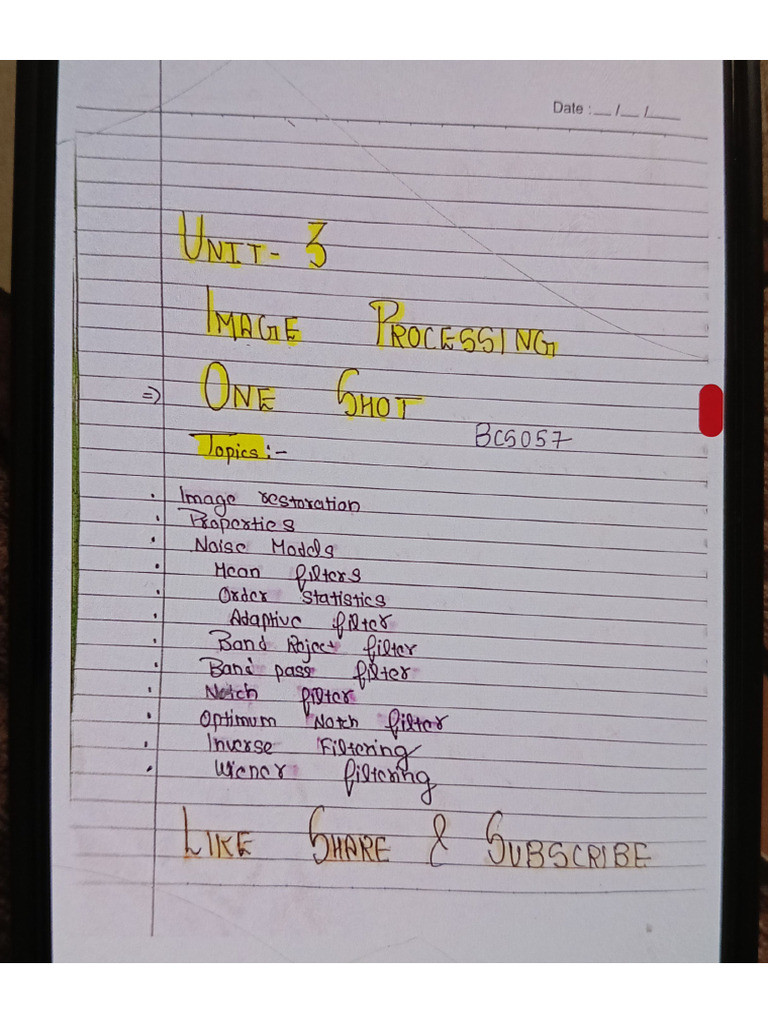 Date : __ / __ / ____
UNIT- 3
IMAGE PROCESSING
⇒ ONE SHOT
BCS057
Topics :-
· Image restoration
· Properties
· Noise Models
· Mean filters
· Order Statistics
· Adaptive filter
· Band Reject filter
· Band pass filter
· Notch filter
· Optimum Notch filter
· Inverse Filtering
· Wiener filtering
LIKE SHARE & SUBSCRIBE